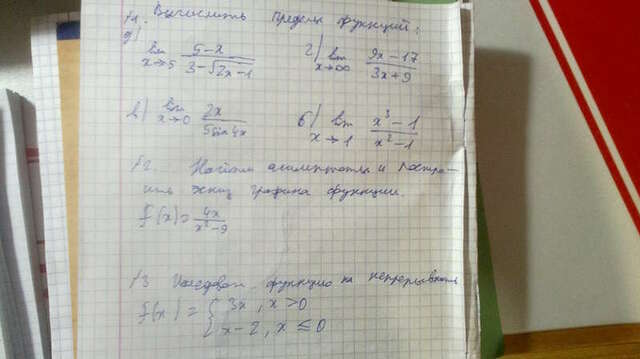 №1. Вычислить пределы функций:
д) lim x→5 (5-x)/(3-√(2x-1)) г) lim x→∞ (9x-17)/(3x+9)
в) lim x→0 2x/(5sin4x) б) lim x→1 (x³-1)/(x²-1)
№2. Найти асимптоты и постро-
ить эскиз графика функции.
f(x)=4x/(x²-9)
№3 Исследован. функцию на непрерывность
f(x) = { 3x, x>0
x-2, x≤0